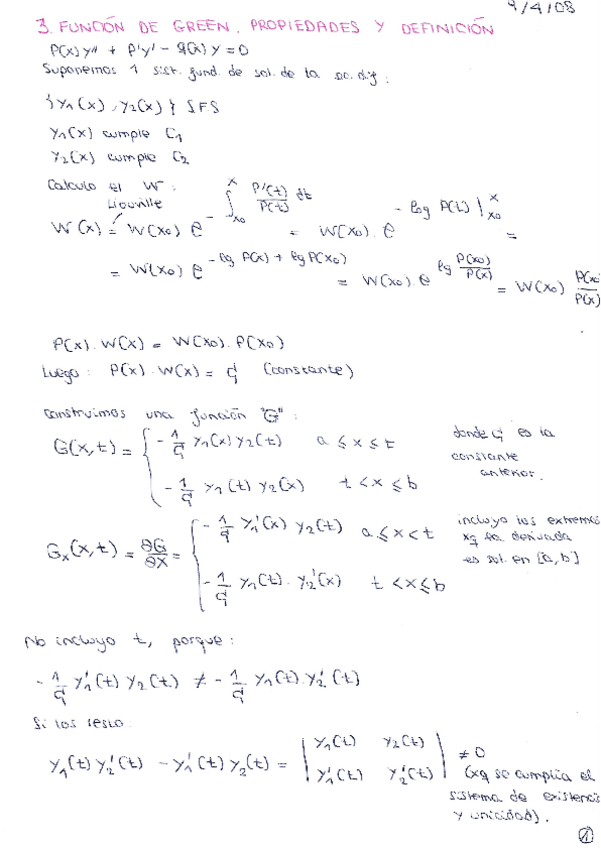 9/4/08
3. FUNCIÓN DE GREEN. PROPIEDADES Y DEFINICIÓN
P(x)y'' + P'y' - q(x)y = 0
Suponemos 1 sist. fund. de sol. de la ec. dif:
{y₁(x), y₂(x)} SFS
y₁(x) cumple C₁
y₂(x) cumple C₂
Calculo el W:
Liouville
W(x) = W(x₀) e^{-∫_{x₀}^{x} P'(t)/P(t) dt} = W(x₀) · e^{-log P(t) |_{x₀}^{x}} =
= W(x₀) e^{-lg P(x) + lg P(x₀)} = W(x₀) · e^{lg P(x₀)/P(x)} = W(x₀) P(x₀)/P(x)
P(x) · W(x) = W(x₀) · P(x₀)
Luego: P(x) · W(x) = C₁ (constante)
Construimos una función "G":
G(x,t) = { -1/C₁ y₁(x) y₂(t) a ≤ x ≤ t
-1/C₁ y₁(t) y₂(x) t < x ≤ b
donde C₁ es la
constante
anterior.
Gₓ(x,t) = ∂G/∂x = { -1/C₁ y₁'(x) y₂(t) a ≤ x < t
-1/C₁ y₁(t) · y₂'(x) t < x ≤ b
incluyo los extremos
xq la derivada
es sol. en [a,b]
No incluyo t, porque:
-1/C₁ y₁'(t) y₂(t) ≠ -1/C₁ y₁(t) · y₂'(t)
Si los resto:
y₁(t) y₂'(t) - y₁'(t) y₂(t) = | y₁(t) y₂(t) |
| y₁'(t) y₂'(t) | ≠ 0
(xq se cumplía el
sistema de existencia
y unicidad).
1